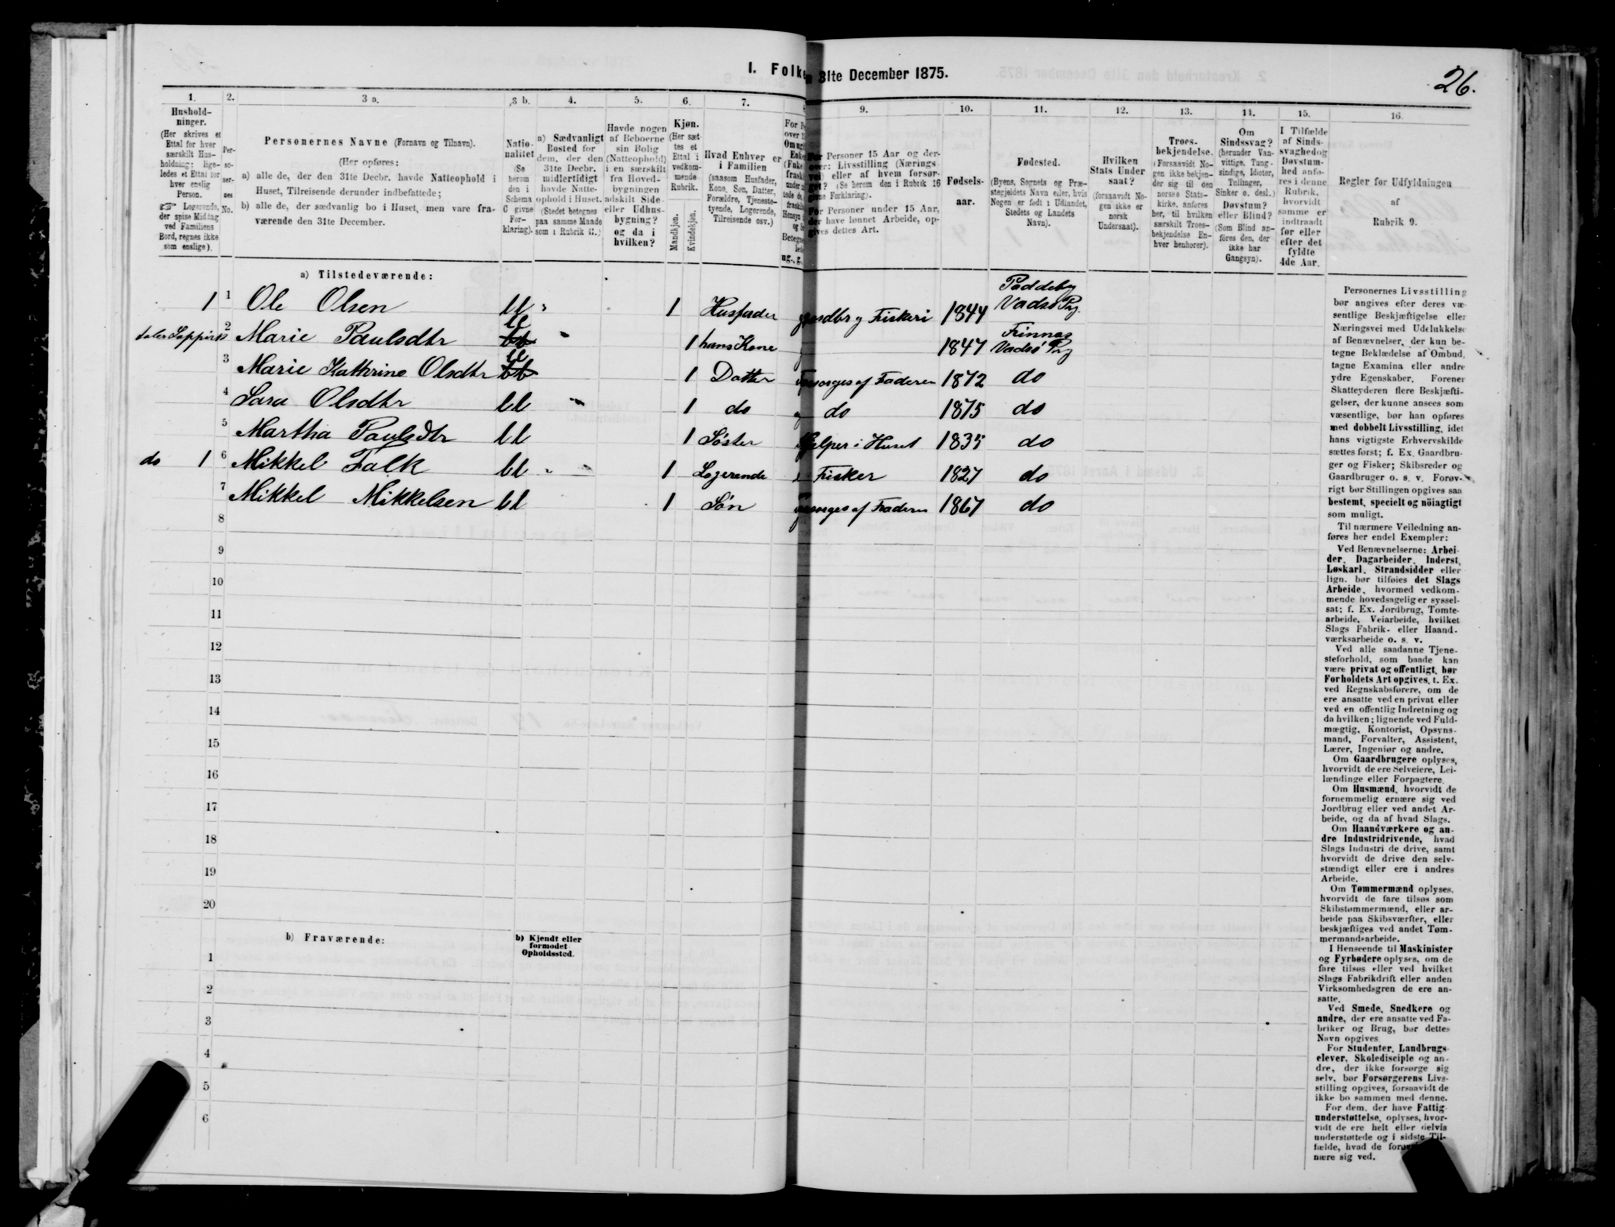 I. Folke
31te December 1875.
26.
1.
2.
3 a.
3 b.
4.
5.
6.
7.
9.
10.
11.
12.
13.
14.
15.
16.
Hushold-
ninger.
(Her skrives et
Ettal for hver
særskilt Hus-
holdning; lige-
ledes et Ettal for
hver enslig
Person.
Logerende,
der spise Middag
ved Familiens
Bord, regnes ikke
som enslige).
Per-
so-
ner-
nes
No.
Personernes Navne (Fornavn og Tilnavn).
(Her opføres:
a) alle de, der den 31te Decbr. havde Natteophold i
Huset, Tilreisende derunder indbefattede;
b) alle de, der sædvanlig bo i Huset, men vare fra-
værende den 31te December.
Natio-
nalitet
(Se
herom
den i
Schema
C givne
For-
klaring).
a) Sædvanligt
Bosted for
dem, der den
31te Decbr.
midlertidigt
havde Natte-
ophold i Huset.
(Stedet betegnes
paa samme Maade
som i Rubrik 11.)
Havde nogen
af Beboerne
sin Bolig
(Natteophold)
i en særskilt
fra Hoved-
bygningen
adskilt Side-
eller Udhus-
bygning?
og da i
hvilken?
Kjøn.
(Her sæt-
tes et
Ettal i
vedkom-
mende
Rubrik.
Mandkjøn.
Kvindekjøn.
Hvad Enhver er
i Familien
(saasom Husfader,
Kone, Søn, Datter,
Forældre, Tjeneste-
tyende, Logerende,
Tilreisende osv.)
Personer 15 Aar og der-
over: Livsstilling (Nærings-
vei) eller af hvem forsør-
get? (Se herom den i Rubrik 16
givne Forklaring).
For Personer under 15 Aar,
der have lønnet Arbeide, op-
gives dettes Art.
Fødsels-
aar.
Fødested.
(Byens, Sognets og Præ-
stegjeldets Navn eller, hvis
Nogen er født i Udlandet,
Stedets og Landets
Navn).
Hvilken
Stats Under
saat?
(forsaavidt No-
gen ikke er
norsk
Undersaat).
Troes-
bekjendelse.
(Forsaavidt No-
gen ikke bekjen-
der sig til den
norske Stats-
kirke, anføres
her, til hvilken
særskilt Troes-
bekjendelse En-
hver henhører).
Om
Sindssvag?
(herunder Van-
vittige, Tung-
sindige, Idioter,
Tullinger,
Sinker o. desl.)
Døvstum?
eller Blind?
(Som Blind an-
føres den, der
ikke har
Gangsyn).
I Tilfælde
af Sinds-
svaghed og
Døvstum-
hed anfø-
res i denne
Rubrik,
hvorvidt
samme er
indtraadt
før eller
efter det
fyldte
4de Aar.
Regler for Udfyldningen
af
Rubrik 9.
a) Tilstedeværende:
1 1 Ole Olsen 1 Husfader Fiskeri 1844 Paddeby Vadsø Prg
2 Marie Paulsdtr 1 hans Kone 1847 Finnæs Vadsø Prg
3 Marie Kathrine Olsdtr 1 Datter forsorges af Faderen 1872 do
4 Sara Olsdtr 1 do do 1875 do
5 Martha Paulsdtr 1 Søster hjelper i Huset 1835 do
do 1 6 Mikkel Falk 1 Logerende Fisker 1827 do
7 Mikkel Mikkelsen 1 Søn forsorges af Faderen 1867 do
8
9
10
11
12
13
14
15
16
17
18
19
20
b) Fraværende:
b) Kjendt eller
formodet
Opholdssted.
1
2
3
4
5
6
Personernes Livsstilling
bør angives efter deres væ-
sentlige Beskjæftigelse eller
Næringsvei med Udelukkelse
af Benævnelser, der kun be-
tegne Beklædelse af Ombud,
tagne Examina eller andre
ydre Egenskaber. Forener
Skatteyderen flere Beskjæfti-
gelser, der kunne ansees som
væsentlige, bør han opføres
med dobbelt Livsstilling, idet
hans vigtigste Erhvervskilde
sættes først; f. Ex. Gaardbru-
ger og Fisker; Skibsreder og
Gaardbruger o. s. v. Forøv-
rigt bør Stillingen opgives saa
bestemt, specielt og nøiagtigt
som muligt.
Til nærmere Veiledning an-
føres her endel Exempler:
Ved Benævnelserne: Arbei-
der, Dagarbeider, Inderst,
Løskarl, Strandsidder eller
lign. bør tilføies det Slags
Arbeide, hvormed vedkom-
mende hovedsagelig er syssel-
sat; f. Ex. Jordbrug, Tomte-
arbeide, Veiarbeide, hvilket
Slags Fabrik- eller Haand-
værksarbeide o. s. v.
Ved alle saadanne Tjene-
steforhold, som baade kan
være privat og offentligt, bør
Forholdets Art opgives, f. Ex.
ved Regnskabsførere, om de
ere ansatte ved en privat eller
ved en offentlig Indretning og
da hvilken; lignende ved Fuld-
mægtig, Kontorist, Opsyns-
mand, Forvalter, Assistent,
Lærer, Ingeniør og andre.
Om Gaardbrugere oplyses,
hvorvidt de ere Selveiere, Lei-
lændinge eller Forpagtere.
Om Husmænd, hvorvidt de
fornemmelig ernære sig ved
Jordbrug eller ved andet Ar-
beide, og da af hvad Slags.
Om Haandværkere og an-
dre Industridrivende, hvad
Slags Industri de drive, samt
hvorvidt de drive den selv-
stændigt eller ere i andres
Arbeide.
Om Tømmermænd oplyses,
hvorvidt de fare tilsøs som
Skibstømmermænd, eller ar-
beide paa Skibsværfter, eller
beskjæftiges ved andet Tøm-
mermandsarbeide.
I Henseende til Maskinister
og Fyrbødere oplyses, om de
fare tilsøs eller ved hvilket
Slags Fabrikdrift eller anden
Virksomhedsgren de ere an-
satte.
Ved Smede, Snedkere og
andre, der ere ansatte ved Fa-
briker og Brug, bør dettes
Navn opgives
For Studenter, Landbrugs-
elever, Skoledisciple og an-
dre, der ikke forsørge sig
selv, bør Forsørgerens Livs-
stilling opgives, forsaavidt de
ikke bo sammen med denne.
For dem, der have Fattig-
understøttelse, oplyses, hvor-
vidt de ere helt eller delvis
understøttede og i sidste Til-
fælde, hvad de
nære sig ved.